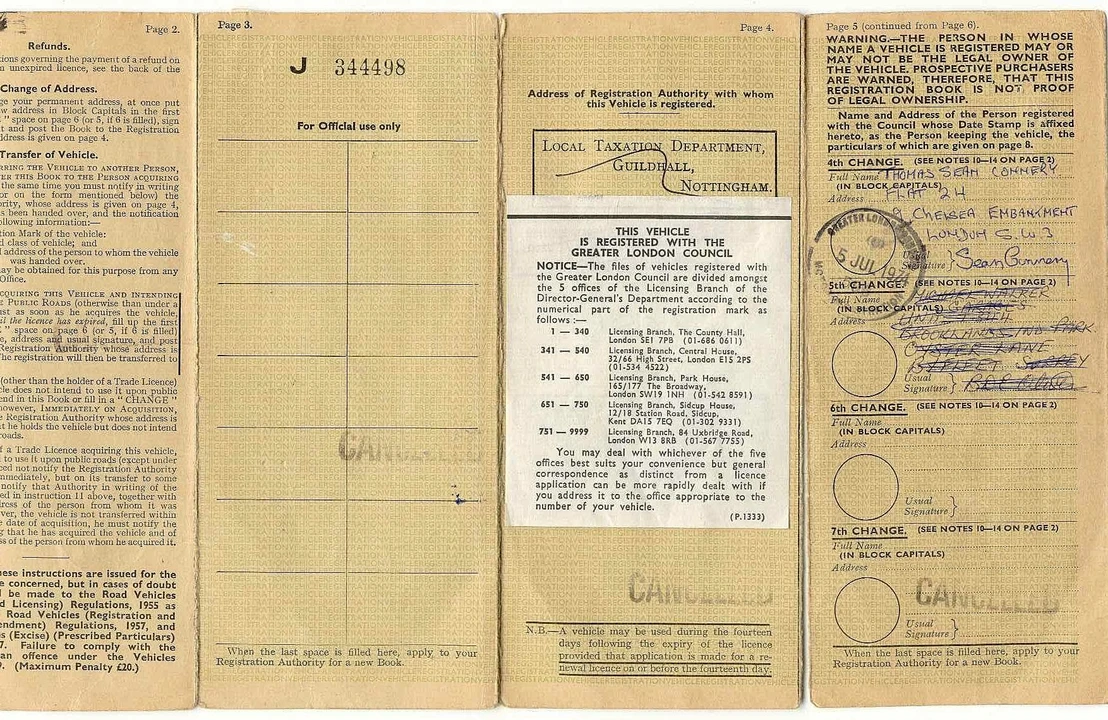 Page 2.
Refunds.
tions governing the payment of a refund on
n unexpired licence, see the back of the
Change of Address.
ge your permanent address, at once put
w address in Block Capitals in the first
" space on page 6 (or 5, if 6 is filled), sign
t and post the Book to the Registration
ddress is given on page 4.
Transfer of Vehicle.
RRING THE VEHICLE TO ANOTHER PERSON,
ER THIS BOOK TO THE PERSON ACQUIRING
the same time you must notify in writing
or on the form mentioned below) the
ority, whose address is given on page 4,
as been handed over, and the notification
ollowing information:—
tion Mark of the vehicle:
d class of vehicle; and
l address of the person to whom the vehicle
was handed over.
may be obtained for this purpose from any
Office.
CQUIRING THIS VEHICLE AND INTENDING
E PUBLIC ROADS (otherwise than under a
ust as soon as he acquires the vehicle,
til the licence has expired, fill up the first
" space on page 6 (or 5, if 6 is filled)
e, address and usual signature, and post
Registration Authority whose address is
The registration will then be transferred to
(other than the holder of a Trade Licence)
cle does not intend to use it upon public
end in this Book or fill in a " CHANGE "
however, IMMEDIATELY ON ACQUISITION,
e Registration Authority whose address is
t he holds the vehicle but does not intend
roads.
f a Trade Licence acquiring this vehicle,
to use it upon public roads (except under
eed not notify the Registration Authority
mmediately, but on its transfer to some
notify that Authority in writing of the
ed in instruction 11 above, together with
dress of the person from whom it was
ver, the vehicle is not transferred within
e date of acquisition, he must notify the
g that he has acquired the vehicle and of
ss of the person from whom he acquired it.
hese instructions are issued for the
e concerned, but in cases of doubt
l be made to the Road Vehicles
d Licensing) Regulations, 1955 as
Road Vehicles (Registration and
endment) Regulations, 1957, and
s (Excise) (Prescribed Particulars)
7. Failure to comply with the
an offence under the Vehicles
9. (Maximum Penalty £20.)
Page 3.
J 344498
For Official use only
CANCELLED
When the last space is filled here, apply to your
Registration Authority for a new Book.
Page 4.
Address of Registration Authority with whom
this Vehicle is registered.
LOCAL TAXATION DEPARTMENT,
GUILDHALL,
NOTTINGHAM.
THIS VEHICLE
IS REGISTERED WITH THE
GREATER LONDON COUNCIL
NOTICE—The files of vehicles registered with
the Greater London Council are divided amongst
the 5 offices of the Licensing Branch of the
Director-General's Department according to the
numerical part of the registration mark as
follows :—
1 — 340 Licensing Branch, The County Hall,
London SE1 7PB (01-686 0611)
341 — 540 Licensing Branch, Central House,
32/66 High Street, London E15 2PS
(01-534 4522)
541 — 650 Licensing Branch, Park House,
165/177 The Broadway,
London SW19 1NH (01-542 8591)
651 — 750 Licensing Branch, Sidcup House,
12/18 Station Road, Sidcup,
Kent DA15 7EQ (01-302 9331)
751 — 9999 Licensing Branch, 84 Uxbridge Road,
London W13 8RB (01-567 7755)
You may deal with whichever of the five
offices best suits your convenience but general
correspondence as distinct from a licence
application can be more rapidly dealt with if
you address it to the office appropriate to the
number of your vehicle.
(P.1333)
CANCELLED
N.B.—A vehicle may be used during the fourteen
days following the expiry of the licence
provided that application is made for a re-
newal licence on or before the fourteenth day.
Page 5 (continued from Page 6).
WARNING.—THE PERSON IN WHOSE
NAME A VEHICLE IS REGISTERED MAY OR
MAY NOT BE THE LEGAL OWNER OF
THE VEHICLE. PROSPECTIVE PURCHASERS
ARE WARNED, THEREFORE, THAT THIS
REGISTRATION BOOK IS NOT PROOF
OF LEGAL OWNERSHIP.
Name and Address of the Person registered
with the Council whose Date Stamp is affixed
hereto, as the Person keeping the vehicle, the
particulars of which are given on page 8.
4th CHANGE. (SEE NOTES 10—14 ON PAGE 2)
Full Name THOMAS SEAN CONNERY
(IN BLOCK CAPITALS)
Address FLAT 24
9 CHELSEA EMBANKMENT
LONDON S.W 3
GREATER LONDON
5 JUL 197
Usual
Signature } Sean Connery
5th CHANGE. (SEE NOTES 10—14 ON PAGE 2)
Full Name MICHAEL WALKER
(IN BLOCK CAPITALS) GARAGES
Address UNIT
BROOKLANDS IND PARK
OYSTER LANE
BYFLEET SURREY
Usual
Signature }
6th CHANGE. (SEE NOTES 10—14 ON PAGE 2)
Full Name
(IN BLOCK CAPITALS)
Address
Usual
Signature }
7th CHANGE. (SEE NOTES 10—14 ON PAGE 2)
Full Name
(IN BLOCK CAPITALS)
Address
CANCELLED
Usual
Signature }
When the last space is filled here, apply to your
Registration Authority for a new Book.